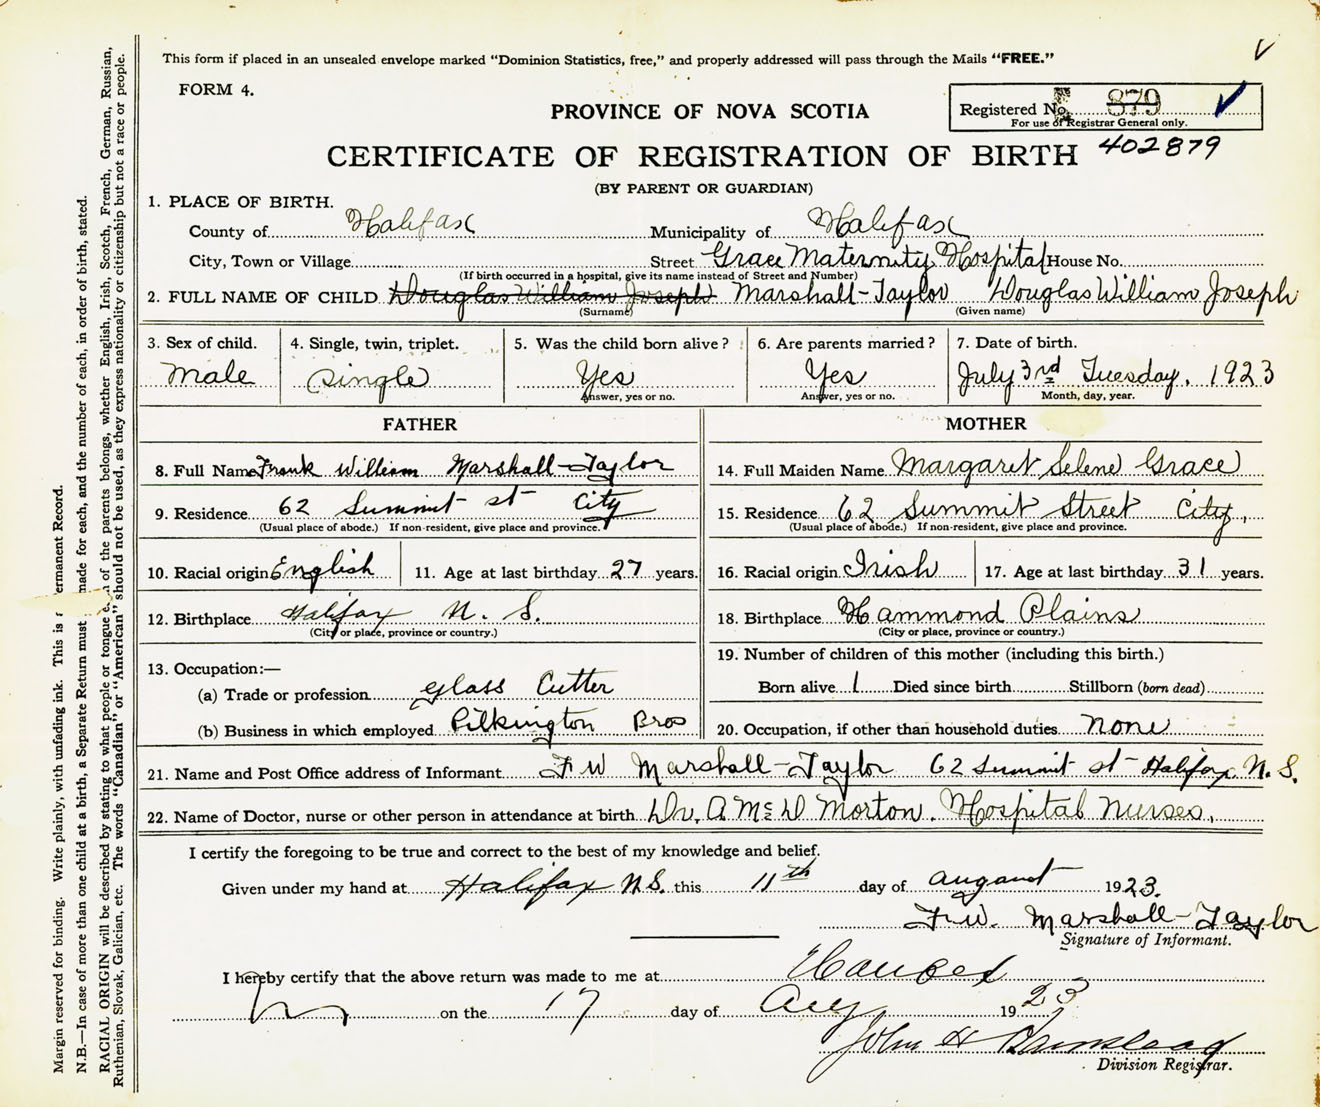 This form if placed in an unsealed envelope marked “Dominion Statistics, free,” and properly addressed will pass through the Mails “FREE.”
FORM 4.
PROVINCE OF NOVA SCOTIA
Registered No. 879
For use of Registrar General only.
CERTIFICATE OF REGISTRATION OF BIRTH 402879
(BY PARENT OR GUARDIAN)
1. PLACE OF BIRTH.
County of Halifax Municipality of Halifax
City, Town or Village Street Grace Maternity Hospital House No.
(If birth occurred in a hospital, give its name instead of Street and Number)
2. FULL NAME OF CHILD Douglas William Joseph Marshall-Taylor Douglas William Joseph
(Surname) (Given name)
3. Sex of child. 4. Single, twin, triplet. 5. Was the child born alive? 6. Are parents married? 7. Date of birth.
Male Single Yes Yes July 3rd Tuesday, 1923
Answer, yes or no. Answer, yes or no. Month, day, year.
FATHER MOTHER
8. Full Name Frank William Marshall-Taylor 14. Full Maiden Name Margaret Selene Grace
9. Residence 62 Summit st City 15. Residence 62 Summit Street City,
(Usual place of abode.) If non-resident, give place and province. (Usual place of abode.) If non-resident, give place and province.
10. Racial origin English 11. Age at last birthday 27 years. 16. Racial origin Irish 17. Age at last birthday 31 years.
12. Birthplace Halifax N. S. 18. Birthplace Hammond Plains
(City or place, province or country.) (City or place, province or country.)
13. Occupation:— 19. Number of children of this mother (including this birth.)
(a) Trade or profession Glass Cutter Born alive 1 Died since birth Stillborn (born dead)
(b) Business in which employed Pilkington Bros 20. Occupation, if other than household duties None
21. Name and Post Office address of Informant F W Marshall-Taylor 62 Summit st Halifax N. S.
22. Name of Doctor, nurse or other person in attendance at birth Dr. A Mc D Morton. Hospital Nurses,
I certify the foregoing to be true and correct to the best of my knowledge and belief.
Given under my hand at Halifax N.S. this 11th day of August 1923.
F.W. Marshall-Taylor
Signature of Informant.
I hereby certify that the above return was made to me at
on the 17 day of Aug 1923
John H
Division Registrar.
Margin reserved for binding. Write plainly, with unfading ink. This is ermanent Record.
N.B.—In case of more than one child at a birth, a Separate Return must made for each, and the number of each, in order of birth, stated.
RACIAL ORIGIN will be described by stating to what people or tongue of the parents belongs, whether English, Irish, Scotch, French, German, Russian,
Ruthenian, Slovak, Galician, etc. The words “Canadian” or “American” should not be used, as they express nationality or citizenship but not a race or people.